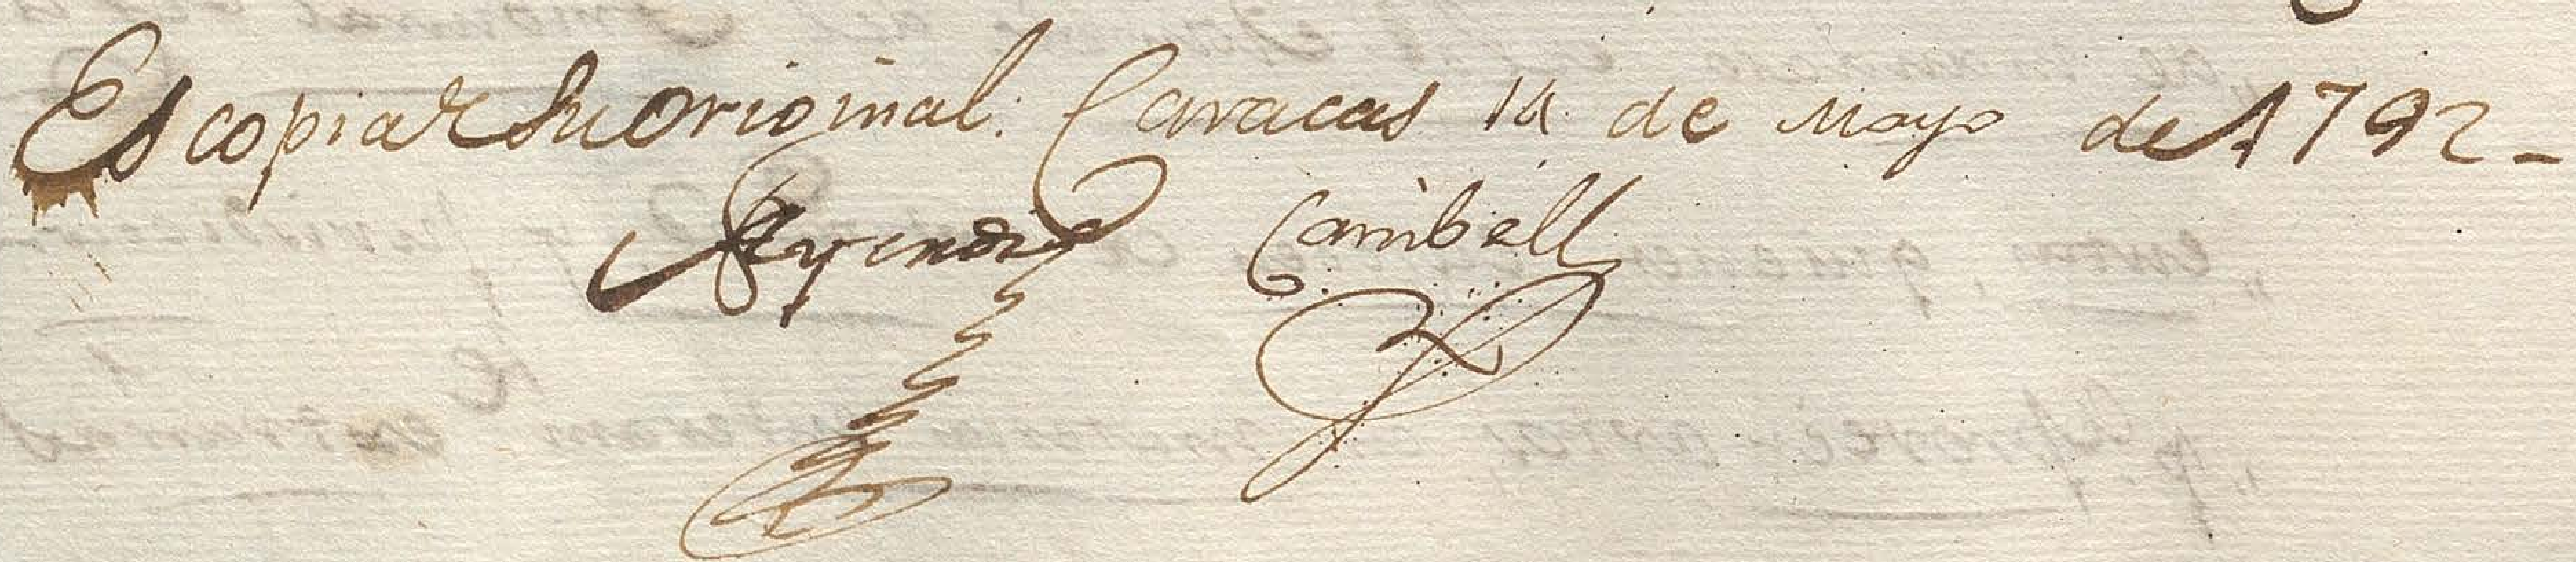 Es copia de Su original. Caracas 14 de Mayo de 1792 -
Cambell